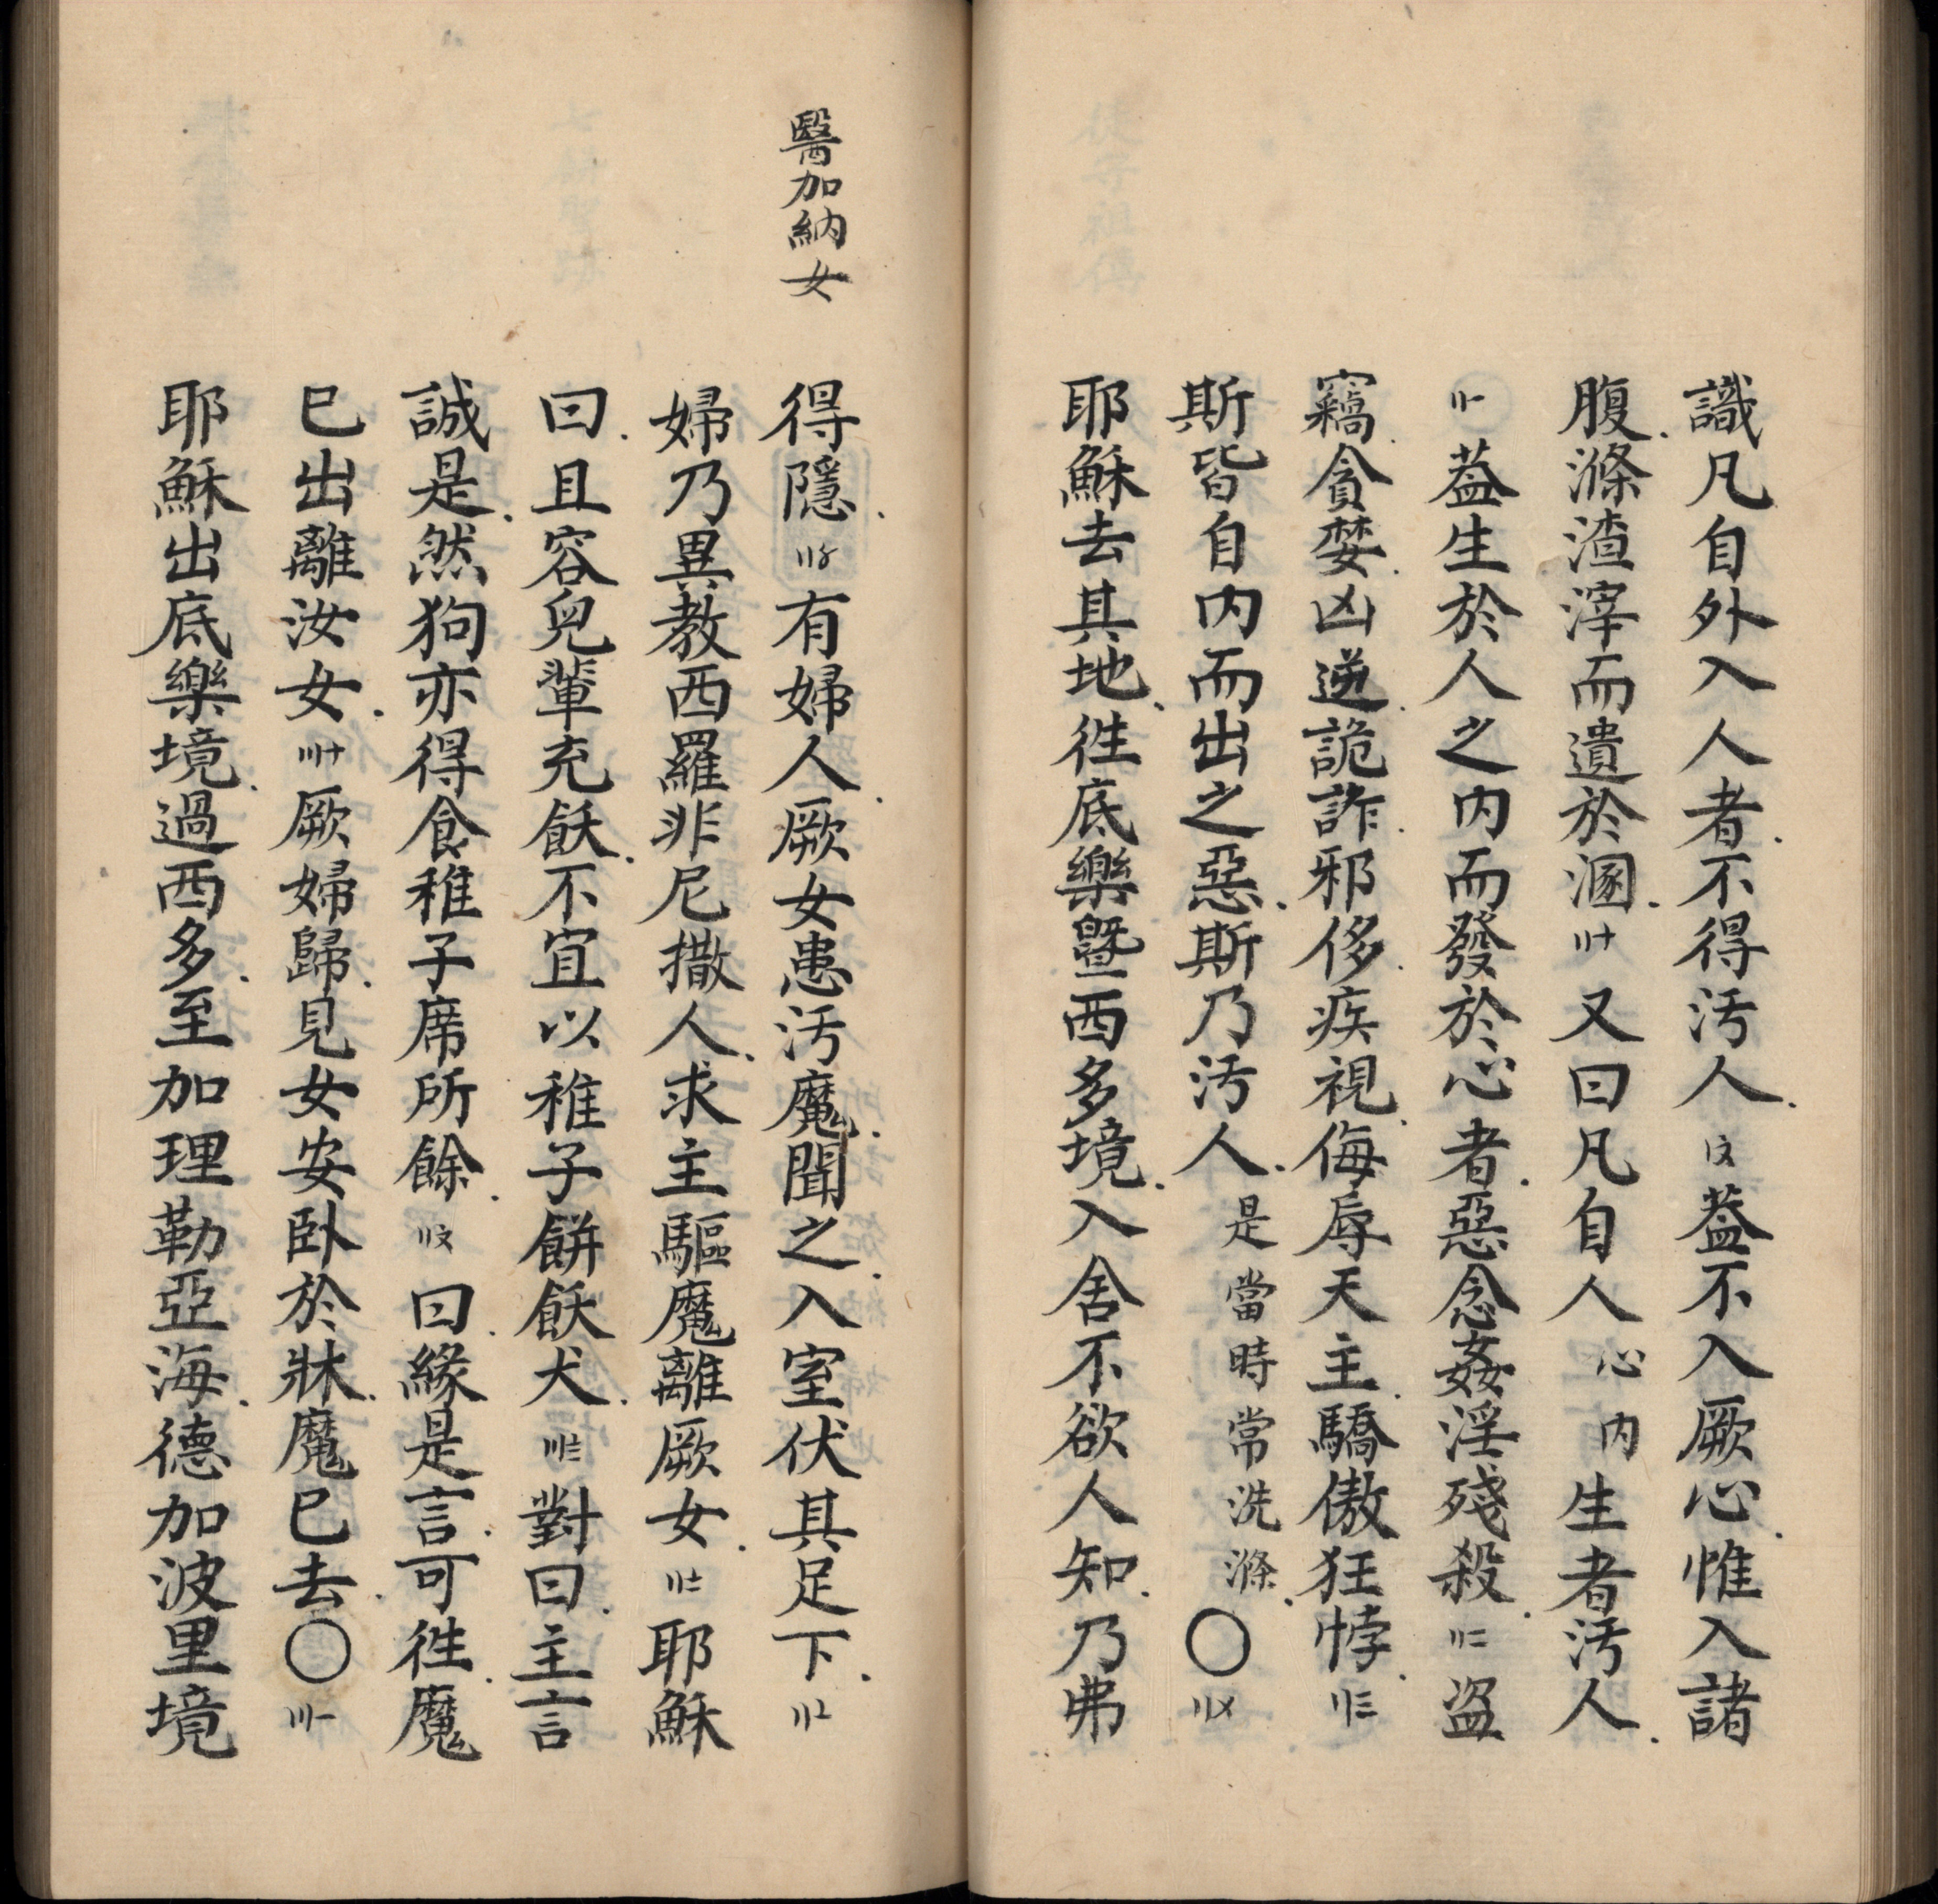 識凡自外入人者不得汚人〡〩葢不入厥心惟入諸
腹滌渣滓而遺於溷〢十又曰凡自人心内生者汚人
〢一葢生於人之内而發於心者惡念姦淫殘殺〢二盗
竊貪婪凶逆詭詐邪侈疾視侮辱天主驕傲狂悖〢三
斯皆自内而出之惡斯乃汚人是當時常洗滌〇〢〤
耶穌去其地徃底樂暨西多境入舍不欲人知乃弗
醫加納女
得隱〢〥有婦人厥女患汚魔聞之入室伏其足下〢〦
婦乃異教西羅非尼撒人求主驅魔離厥女〢〧耶穌
曰且容兒輩充飫不宜以稚子餅飫犬〢〨對曰主言
誠是然狗亦得食稚子席所餘〢〩曰緣是言可徃魔
已出離汝女〣十厥婦歸見女安卧於牀魔已去〇〣一
耶穌出底樂境過西多至加理勒亞海德加波里境